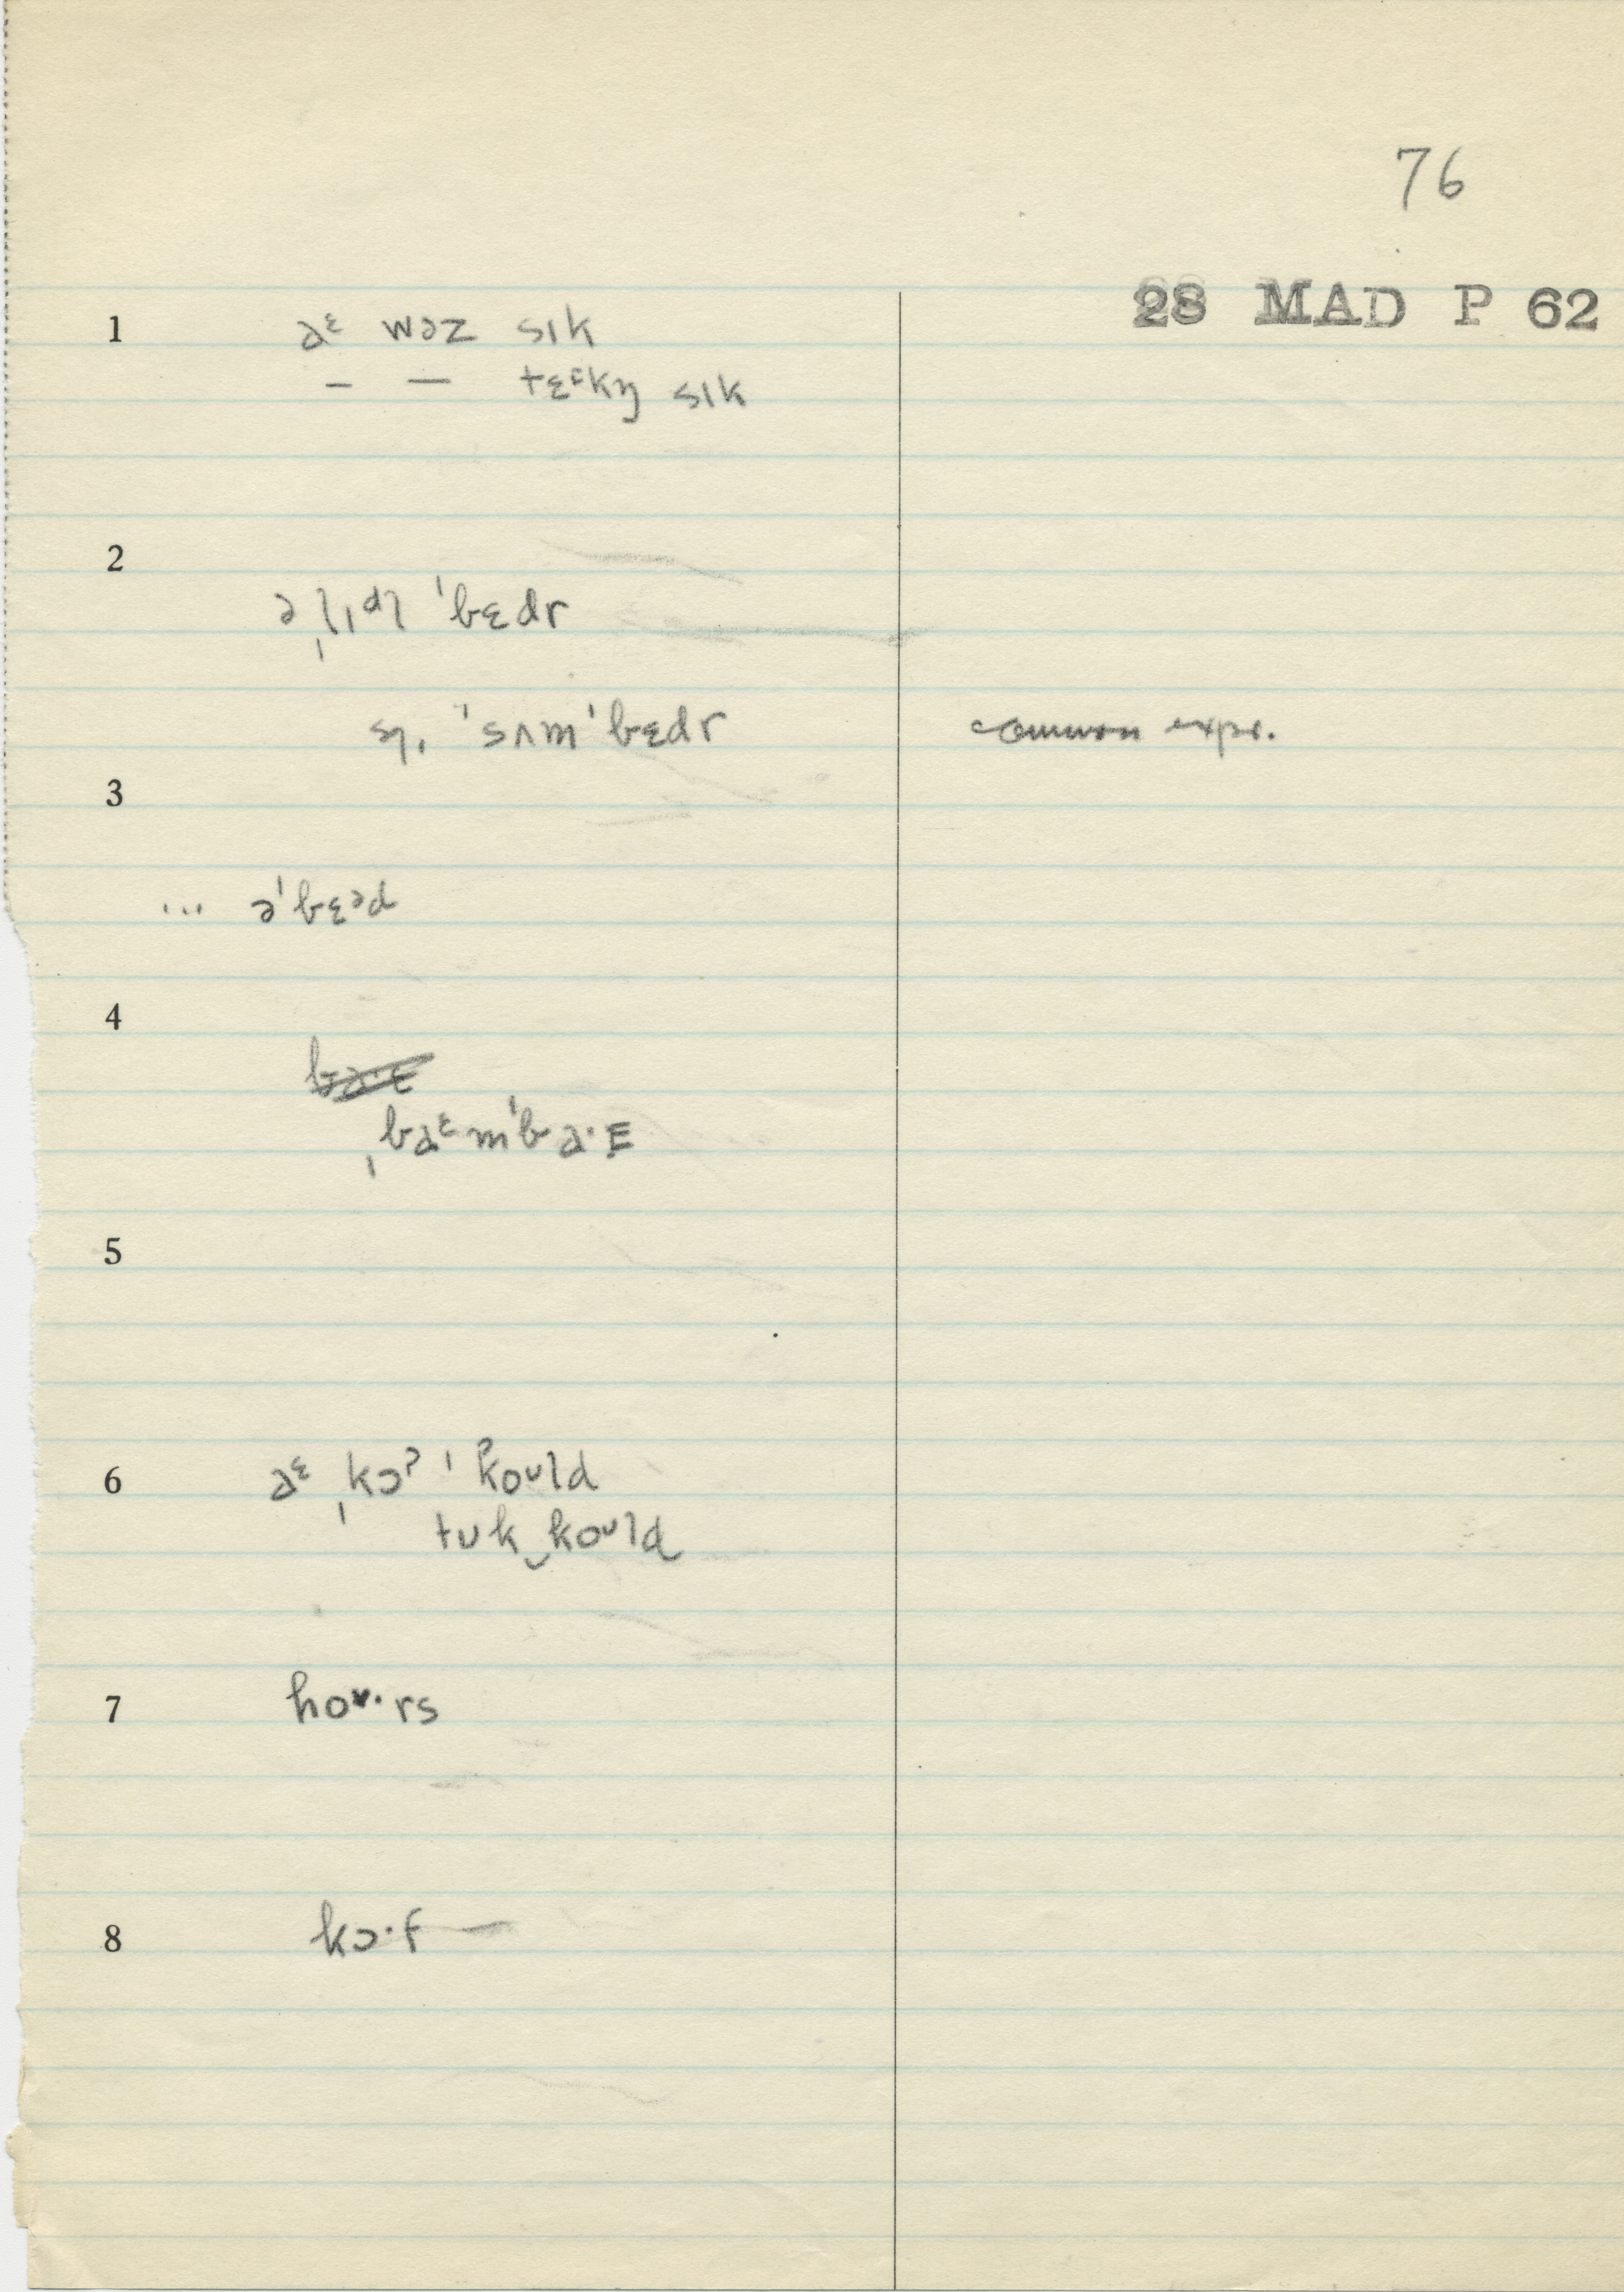 76
28 MAD P 62
1 aᵋ wəz sɪk
– – tɛᶜkŋ sɪk
2
ə ˌlɪᵈl ˈbɛdr
sŋ, ˈsʌmˈbɛdr common expr.
3
... əˈbɛᵊd
4
ˌbaᵋmˈba·E
5
6 aᵋ ˌkɔˀ ˈkoᴜld
tᴜk‿koᴜld
7 hoᴜ·rs
8 kɔ·f —